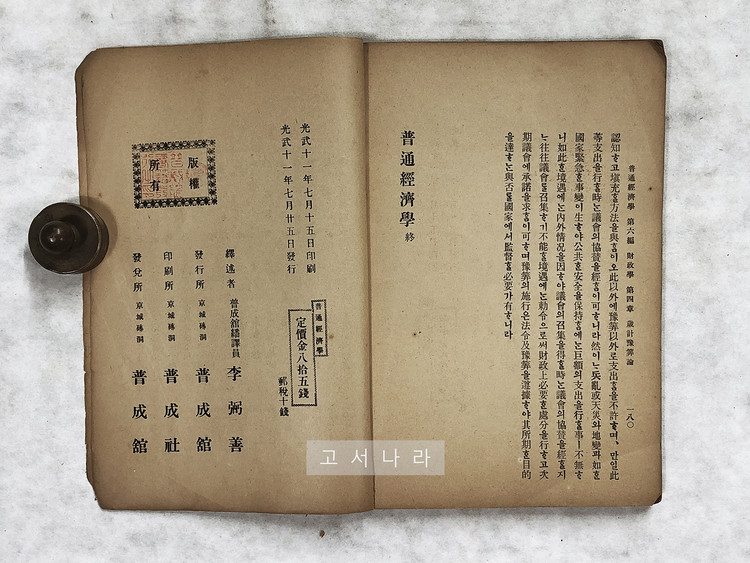 普通經濟學 第六編 財政學 第四章 歲計豫筭論 一八〇
認知ᄒᆞ고塡充ᄒᆞᆯ方法을與ᄒᆞᆷ이오此以外에豫筭以外로支出ᄒᆞᆷ을不許ᄒᆞ며、만일此
等支出을行ᄒᆞᆯ時ᄂᆞᆫ議會의協賛을經ᄒᆞᆷ이可ᄒᆞ니라然이ᄂᆞ兵亂或天災와地變과如ᄒᆞᆫ
國家緊急ᄒᆞᆫ事變이生ᄒᆞ야公共ᄒᆞᆫ安全을保持ᄒᆞᆷ에ᄂᆞᆫ巨額의支出을行ᄒᆞᆯ事ㅣ不無ᄒᆞ
니如此ᄒᆞᆫ境遇에ᄂᆞᆫ內外情况을因ᄒᆞ야議會의召集을得ᄒᆞᆯ時ᄂᆞᆫ議會의協賛을經ᄒᆞᆯ지
ᄂᆞ往往議會를召集ᄒᆞ기不能ᄒᆞᆫ境遇에ᄂᆞᆫ勅令으로써財政上必要ᄒᆞᆫ處分을行ᄒᆞ고次
期議會에承諾을求ᄒᆞᆷ이可ᄒᆞ며豫筭의施行은法令及豫筭을遵據ᄒᆞ야其所期ᄒᆞᆫ目的
을達ᄒᆞᄂᆞᆫ與否를國家에서監督ᄒᆞᆯ必要가有ᄒᆞ니라
普通經濟學 終
光武十一年七月十五日印刷
光武十一年七月廿五日發行
普通經濟學
定價金八拾五錢
郵稅十錢
版權
所有
繹述者 普成舘繙譯員 李弼善
發行所 京城磚洞 普成舘
印刷所 京城磚洞 普成社
發兌所 京城磚洞 普成舘
고서나라